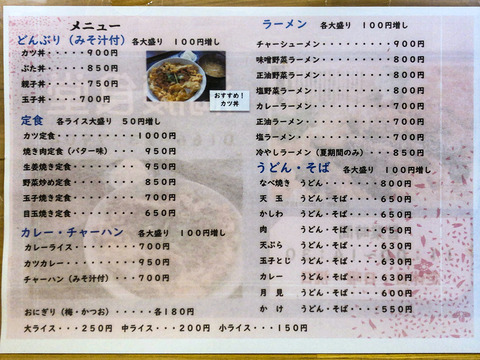 メニュー
どんぶり（みそ汁付） 各大盛り 100円増し
カツ丼・・・・・900円
ぶた丼・・・・・850円
親子丼・・・・・750円
玉子丼・・・・700円
おすすめ！
カツ丼
定食 各ライス大盛り 50円増し
カツ定食・・・・・・・1000円
焼き肉定食（バター味）・・・950円
生姜焼き定食・・・・・・950円
野菜炒め定食・・・・・・850円
玉子焼き定食・・・・・・700円
目玉焼き定食・・・・・・650円
カレー・チャーハン 各大盛り 100円増し
カレーライス・・・・・・・700円
カツカレー・・・・・・・・950円
チャーハン（みそ汁付）・・・・700円
おにぎり（梅・かつお）・・・・・各180円
大ライス・・・250円 中ライス・・・200円 小ライス・・・150円
ラーメン 各大盛り 100円増し
チャーシューメン・・・・・・・・900円
味噌野菜ラーメン・・・・・・・・800円
正油野菜ラーメン・・・・・・・・800円
塩野菜ラーメン・・・・・・・・・800円
カレーラーメン・・・・・・・・・700円
正油ラーメン・・・・・・・・・・700円
塩ラーメン・・・・・・・・・・・700円
冷やしラーメン（夏期間のみ）・・・850円
うどん・そば 各大盛り 100円増し
なべ焼き うどん・・・・・・・800円
天玉 うどん・そば・・・・・650円
かしわ うどん・そば・・・・・650円
肉 うどん・そば・・・・・650円
天ぷら うどん・そば・・・・・630円
玉子とじ うどん・そば・・・・・630円
カレー うどん・そば・・・・・630円
月見 うどん・そば・・・・・600円
かけ うどん・そば・・・・・550円